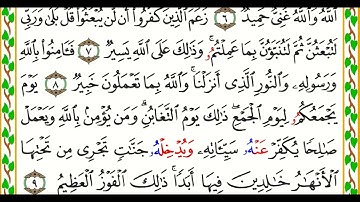 وَٱللَّهُ وَٱللَّهُ غَنِىٌّ حَمِيدٌ ٦ زَعَمَ ٱلَّذِينَ كَفَرُوٓا۟ أَن لَّن يُبْعَثُوا۟ قُلْ بَلَىٰ وَرَبِّى
لَتُبْعَثُنَّ ثُمَّ لَتُنَبَّؤُنَّ بِمَا عَمِلْتُمْ وَذَٰلِكَ عَلَى ٱللَّهِ يَسِيرٌ ٧ فَـَٔامِنُوا۟ بِٱللَّهِ
وَرَسُولِهِۦ وَٱلنُّورِ ٱلَّذِىٓ أَنزَلْنَا وَٱللَّهُ بِمَا تَعْمَلُونَ خَبِيرٌ ٨ يَوْمَ
يَجْمَعُكُمْ لِيَوْمِ ٱلْجَمْعِ ذَٰلِكَ يَوْمُ ٱلتَّغَابُنِ وَمَن يُؤْمِنۢ بِٱللَّهِ وَيَعْمَلْ
صَٰلِحًا يُكَفِّرْ عَنْهُ سَيِّـَٔاتِهِۦ وَيُدْخِلْهُ جَنَّٰتٍ تَجْرِى مِن تَحْتِهَا
ٱلْأَنْهَٰرُ خَٰلِدِينَ فِيهَآ أَبَدًا ذَٰلِكَ ٱلْفَوْزُ ٱلْعَظِيمُ ٩